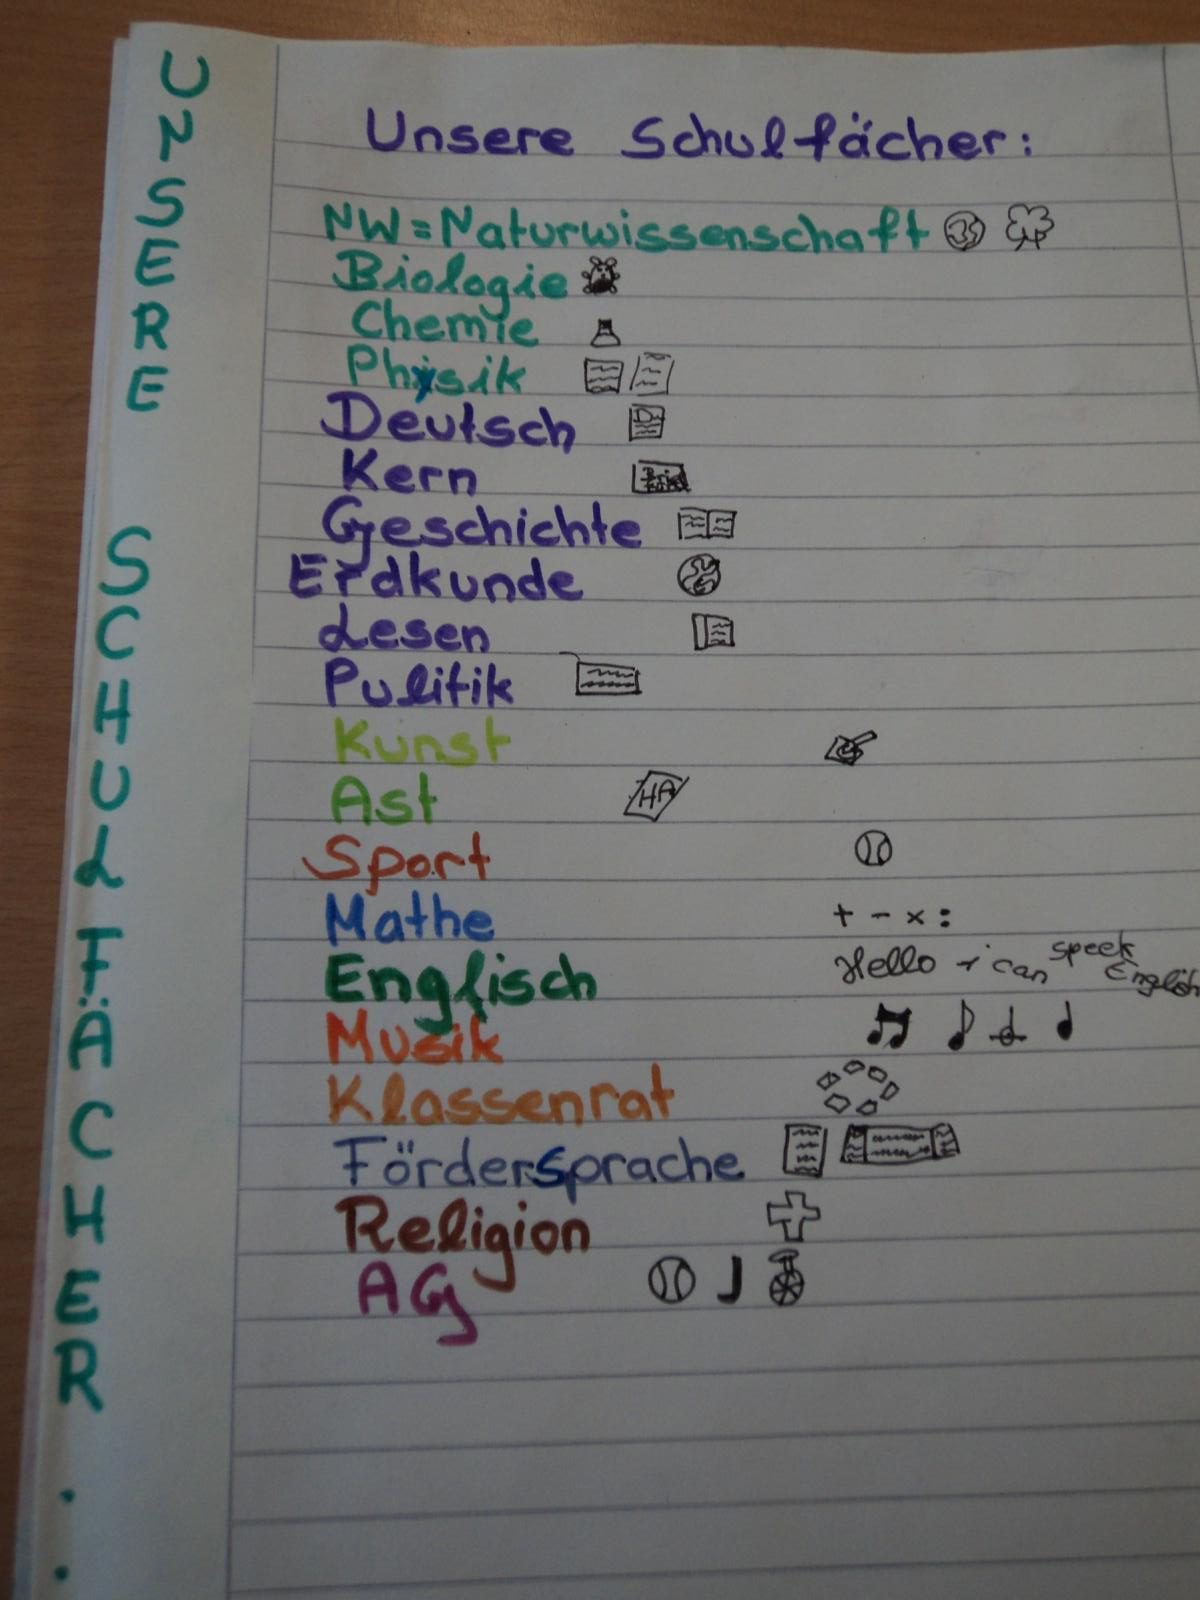 UNSERE SCHULFÄCHER:
Unsere Schulfächer:
NW=Naturwissenschaft
Biologie
Chemie
Physik
Deutsch
Kern
Geschichte
Erdkunde
Lesen
Pulitik
Kunst
Ast HA
Sport
Mathe + - x :
Englisch Hello i can speek English
Musik
Klassenrat
Fördersprache
Religion
AG